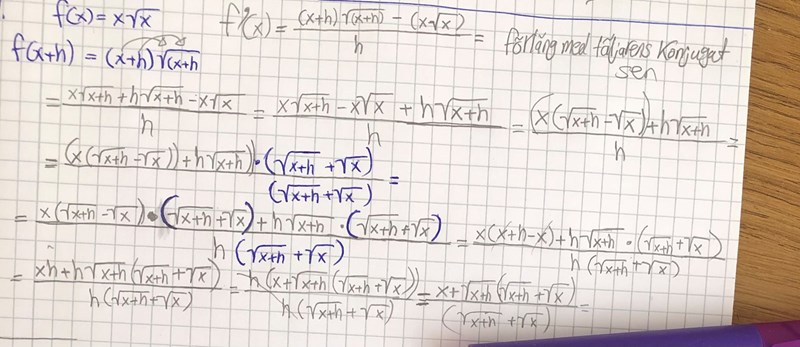 f(x) = x√x
f'(x) = ((x+h)√(x+h) - (x√x))/h = förläng med täljarens konjugat
sen
f(x+h) = (x+h)√(x+h
= (x√x+h + h√x+h - x√x)/h = (x√x+h - x√x + h√x+h)/h = ((x(√x+h - √x)) + h√x+h)/h =
= (x(√x+h - √x)) + h√x+h) · (√x+h + √x)/(√x+h + √x) =
= (x(√x+h - √x) · (√x+h + √x) + h√x+h · (√x+h + √x))/(h(√x+h + √x)) = (x(x+h-x) + h√x+h · (√x+h + √x))/(h(√x+h + √x))
= (xh + h√x+h(√x+h + √x))/(h(√x+h + √x)) = (h(x + √x+h(√x+h + √x)))/(h(√x+h + √x)) = (x + √x+h(√x+h + √x))/(√x+h + √x) =